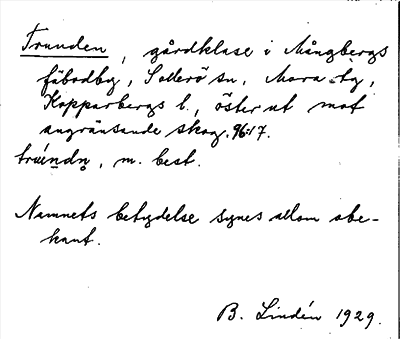 Trunden, gårdklase i Mångbergs
fäbodby, Sollerö sn, Mora tg,
Kopparbergs l., österut mot
angränsande skog. 96:17.
trúndn, m. best.
Namnets betydelse synes allom obe-
kant.
B. Lindén 1929.